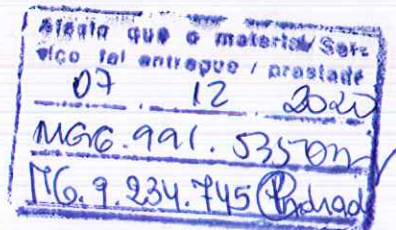 Atesto que o material/Ser-
viço foi entregue / prestado
07 12 2020
MG6.991.535
M6.9.234.745